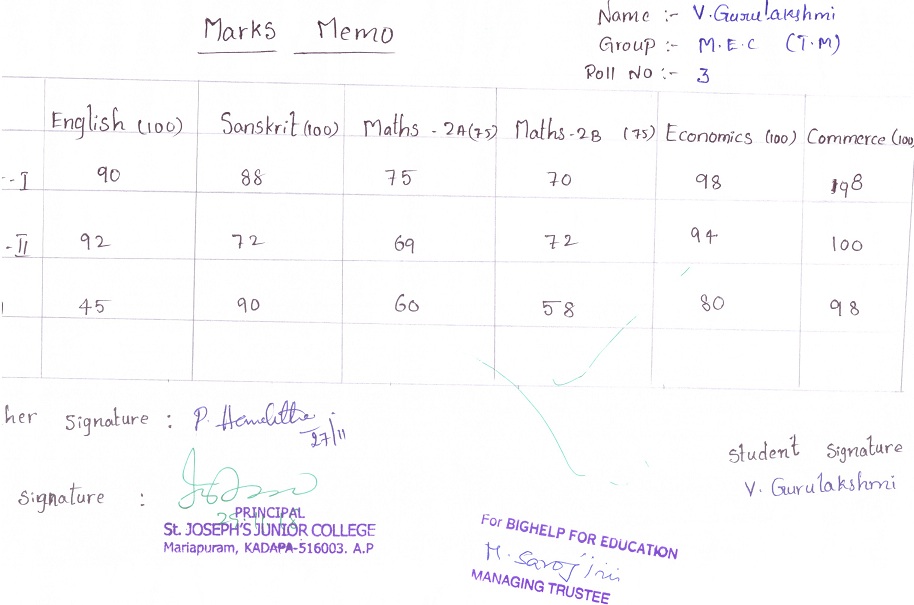 Marks Memo
Name :- V.Gurulakshmi
Group :- M.E.C (T.M)
Roll No :- 3
English (100) Sanskrit (100) Maths - 2A (75) Maths - 2B (75) Economics (100) Commerce (100
-I 90 88 75 70 98 98
-II 92 72 69 72 94 100
45 90 60 58 80 98
her Signature : P. Hemalatha
27/11
Student Signature
V. Gurulakshmi
Signature :
PRINCIPAL
St. JOSEPH'S JUNIOR COLLEGE
Mariapuram, KADAPA-516003. A.P
For BIGHELP FOR EDUCATION
M. Sarojini
MANAGING TRUSTEE